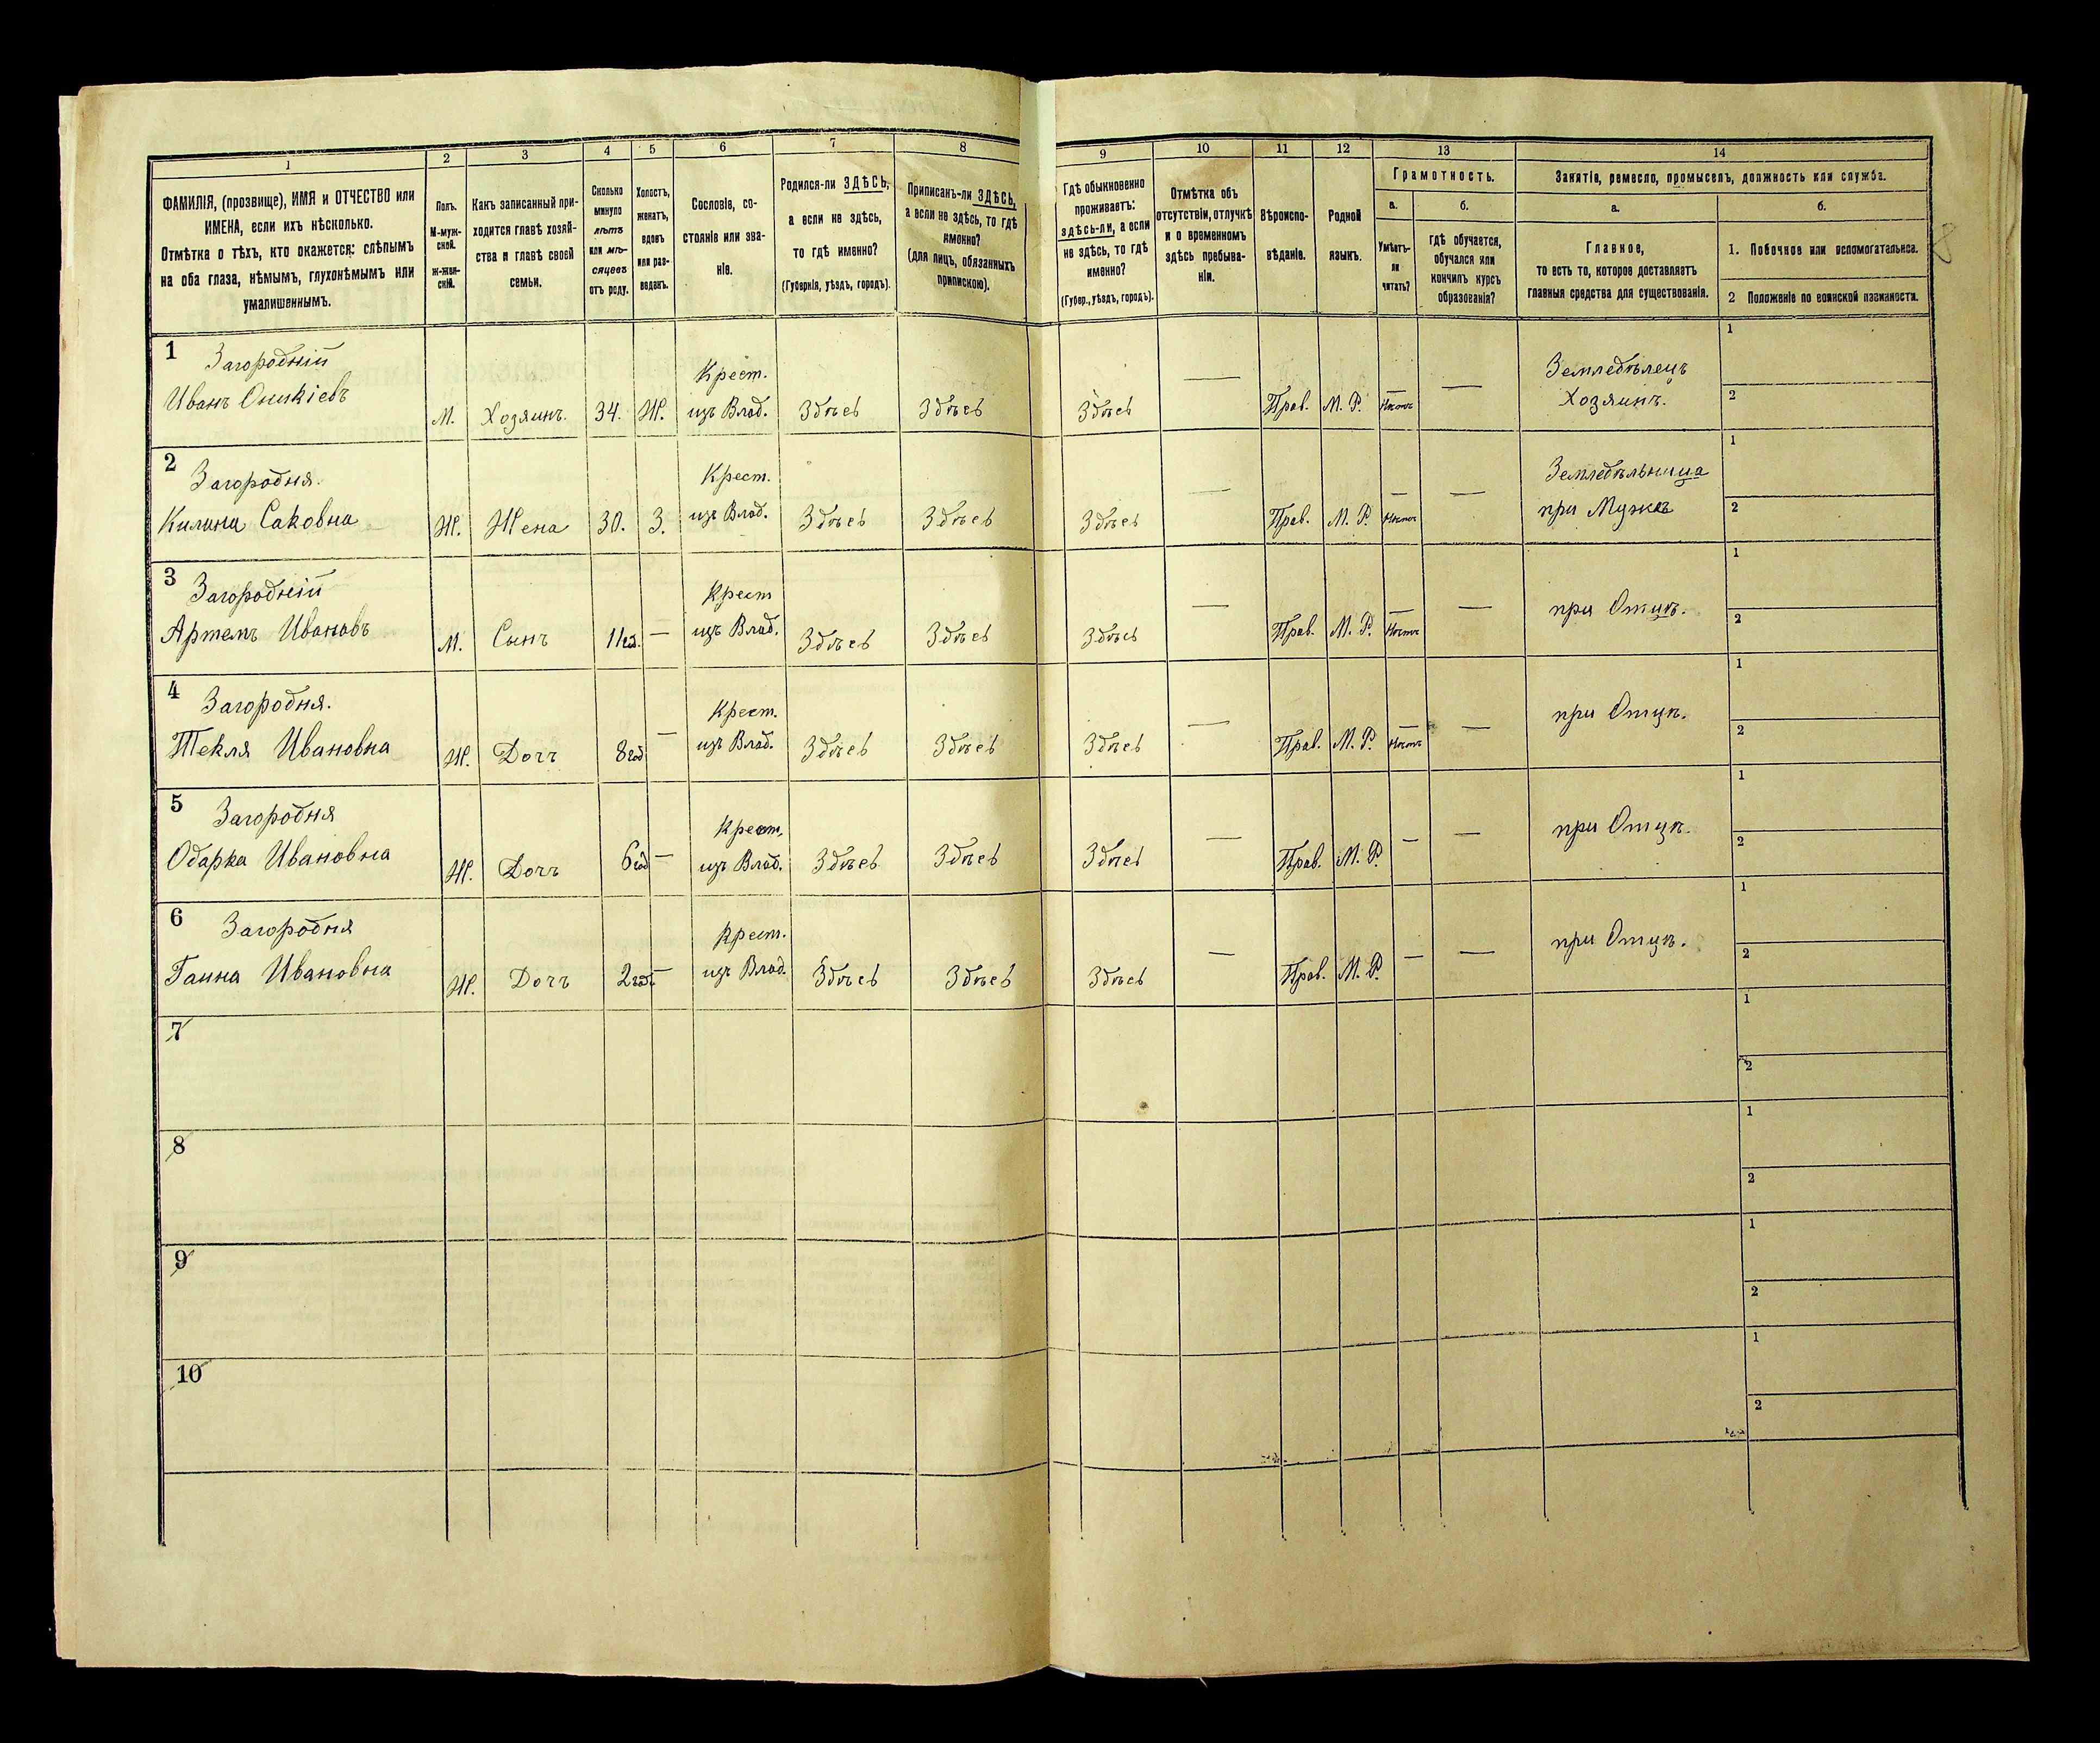 1 2 3 4 5 6 7 8 9 10 11 12 13 14
ФАМИЛІЯ, (прозвище), ИМЯ и ОТЧЕСТВО или
ИМЕНА, если ихъ нѣсколько.
Отмѣтка о тѣхъ, кто окажется: слѣпымъ
на оба глаза, нѣмымъ, глухонѣмымъ или
умалишеннымъ.
Полъ.
М-муж-
ской.
ж-жен-
скій.
Какъ записанный при-
ходится главѣ хозяй-
ства и главѣ своей
семьи.
Сколько
минуло
лѣтъ
или мѣ-
сяцевъ
отъ роду.
Холостъ,
женатъ,
вдовъ
или раз-
веденъ.
Сословіе, со-
стояніе или зва-
ніе.
Родился-ли ЗДѢСЬ,
а если не здѣсь,
то гдѣ именно?
(Губернія, уѣздъ, городъ).
Приписанъ-ли ЗДѢСЬ,
а если не здѣсь, то гдѣ
именно?
(для лицъ, обязанныхъ
припискою).
Гдѣ обыкновенно
проживаетъ:
здѣсь-ли, а если
не здѣсь, то гдѣ
именно?
(Губер., уѣздъ, городъ).
Отмѣтка объ
отсутствіи, отлучкѣ
и о временномъ
здѣсь пребыва-
ніи.
Вѣроиспо-
вѣданіе.
Родной
языкъ.
Грамотность.
а.
Умѣетъ-
ли
читать?
б.
гдѣ обучается,
обучался или
кончилъ курсъ
образованія?
Занятіе, ремесло, промыселъ, должность или служба.
а.
Главное,
то есть то, которое доставляетъ
главныя средства для существованія.
б.
1. Побочное или вспомогательное.
2 Положеніе по воинской повинности.
1 Загородній Крест. Земледѣлецъ 1
Иванъ Оникіевъ М. Хозяинъ. 34. Ж. изъ Влад. Здѣсь Здѣсь Здѣсь — Прав. М. Р. Нѣтъ — Хозяинъ. 2
2 Загородня. Крест. Земледѣльница 1
Килина Саковна Ж. Жена 30. З. изъ Влад. Здѣсь Здѣсь Здѣсь — Прав. М. Р. Нѣтъ — при Мужѣ 2
3 Загородній Крест 1
Артемъ Ивановъ М. Сынъ 11год. — изъ Влад. Здѣсь Здѣсь Здѣсь — Прав. М. Р. Нѣтъ — при Отцѣ. 2
4 Загородня. Крест. 1
Текля Ивановна Ж. Дочъ 8год — изъ Влад. Здѣсь Здѣсь Здѣсь — Прав. М. Р. Нѣтъ — при Отцѣ. 2
5 Загородня Крест. 1
Одарка Ивановна Ж. Дочъ 6год — изъ Влад. Здѣсь Здѣсь Здѣсь — Прав. М. Р. — — при Отцѣ. 2
6 Загородня Крест. 1
Ганна Ивановна Ж. Дочъ 2год — изъ Влад. Здѣсь Здѣсь Здѣсь — Прав. М. Р. — — при Отцѣ. 2
7 1
2
8 1
2
9 1
2
10 1
2